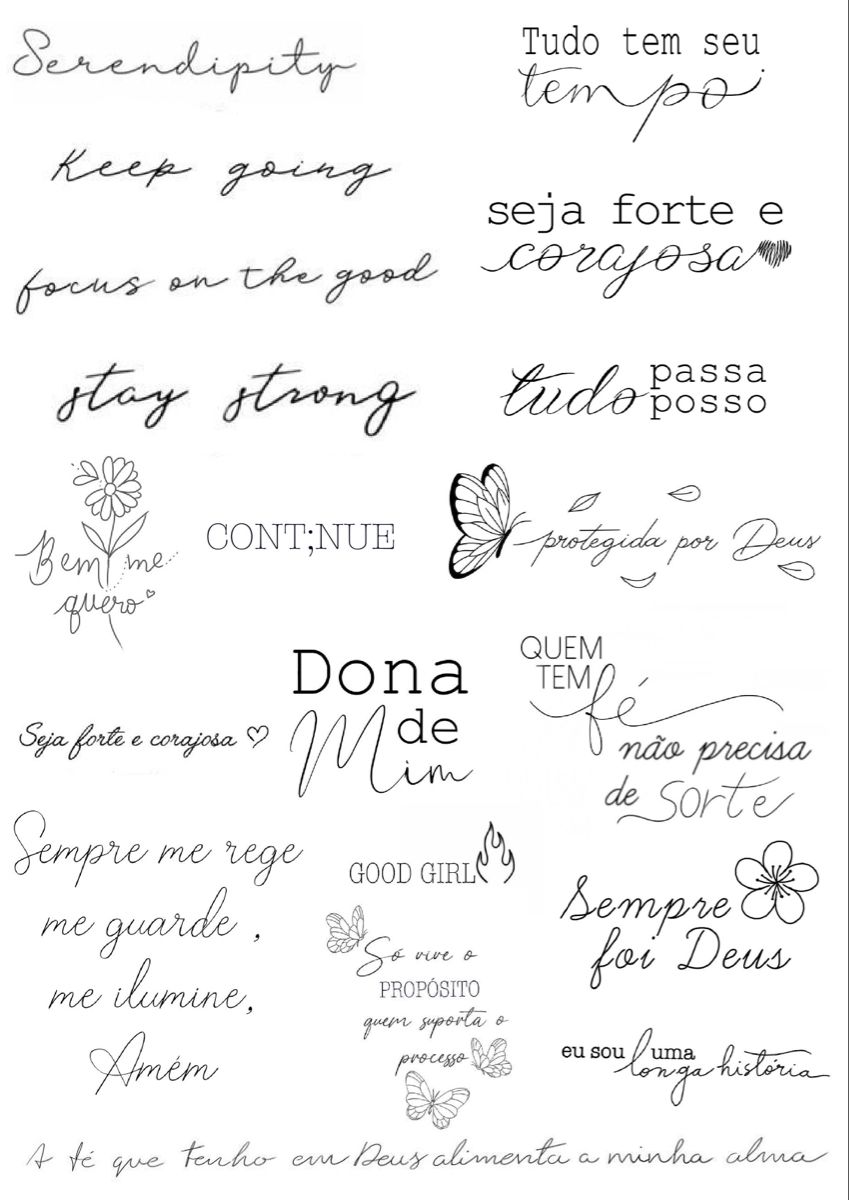 Serendipity
Tudo tem seu
tempo
Keep going
seja forte e
corajosa
focus on the good
stay strong
tudo passa
posso
Bem me
quero
CONT;NUE
protegida por Deus
Seja forte e corajosa
Dona
de
Mim
QUEM
TEM
fé
não precisa
de sorte
Sempre me rege
me guarde ,
me ilumine,
Amém
GOOD GIRL
Só vive o
PROPÓSITO
quem suporta o
processo
Sempre
foi Deus
eu sou uma
longa história
A fé que tenho em Deus alimenta a minha alma